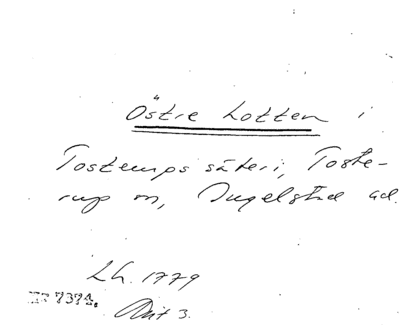 Östre Lotten i
Tosterups säteri, Toste-
rup sn, Ingelstad hd.
Lh. 1779
Nr 7374. Akt 3.